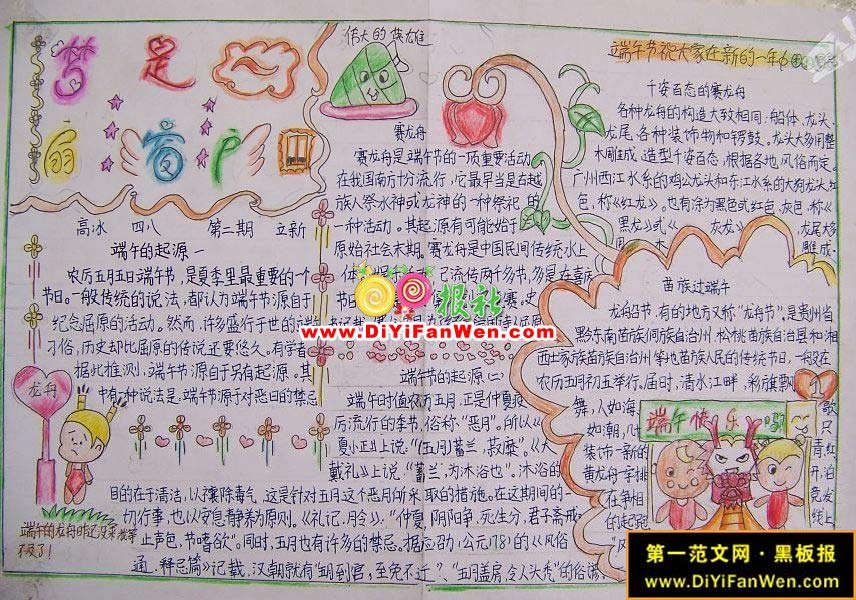 梦是
扇窗户
高冰 四八 第二期 立新
端午的起源一
农历五月五日端午节,是夏季里最重要的一个
节日。一般传统的说法,都认为端午节源自于
纪念屈原的活动。然而,许多盛行于世的端
习俗,历史却比屈原的传说还要悠久。有学者
据此推测,端午节源自于另有起源。其
中有一种说法是,端午节源于对恶日的禁忌
龙舟
端午的龙舟咋还没来 我等
不及了!
伟大的英雄
赛龙舟
赛龙舟是端午节的一项重要活动,
在我国南方十分流行,它最早当是古越
族人祭水神或龙神的一种祭祀的
一种活动。其起源有可能始于
原始社会末期。赛龙舟是中国民间传统水上
体 己流传两千多节,多是在喜庆
节日
端午节的起源(二)
端午时值农历五月,正是仲夏疫
厉流行的季节,俗称“恶月”。所以《
夏小正》上说“(五月)蓄兰,菽糜”。《大
戴礼》上说“蓄兰,为沐浴也”。沐浴的
目的在于清洁,以禳除毒气,这是针对五月这个恶月所采取的措施。在这期间的一
切行事,也以安息静养为原则。《礼记.月令》,“仲夏,阴阳争,死生分,君子斋戒
止声色,节嗜欲”。同时,五月也有许多的禁忌。据应劭(公元178)的《风俗
通.释忌篇》记载,汉朝就有“五月到官,至免不迁”、“五月盖房,令人头秃”的俗谚
端午节祝大家在新的一年
千姿百态的赛龙舟
各种龙舟的构造大致相同:船体、龙头、
龙尾、各种装饰物和锣鼓。龙头大多用整
木雕成,造型千姿百态,根据各地风俗而定。
广州西江水系的鸡公龙头和东江水系的大狗龙头红
色,称《红龙》。也有涂为黑色或红色、灰色,称《
黑龙》或《 灰龙》 龙尾多
用 木 雕成.
苗族过端午
龙船节,有的地方又称“龙舟节”,是贵州省
黔东南苗族侗族自治州、松桃苗族自治县和湘
西土家族苗族自治州等地苗族人民的传统节日,一般在
农历五月初五举行。届时,清水江畔,彩旗飘
舞,人如海,歌
如潮,几十只
装饰一新的青、红、
黄龙舟一字排开,泊
在争相竞发
线上
端午快乐
1
根社
www.DiYiFanWen.com
第一范文网·黑板报
www.DiYiFanWen.com